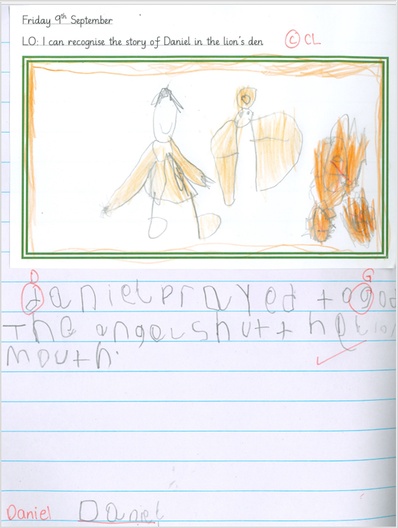 Friday 9th September
LO: I can recognise the story of Daniel in the lion's den
© CL
D G
daniel prayed to god
The angel shut the lion
mouth.
Daniel Daniel